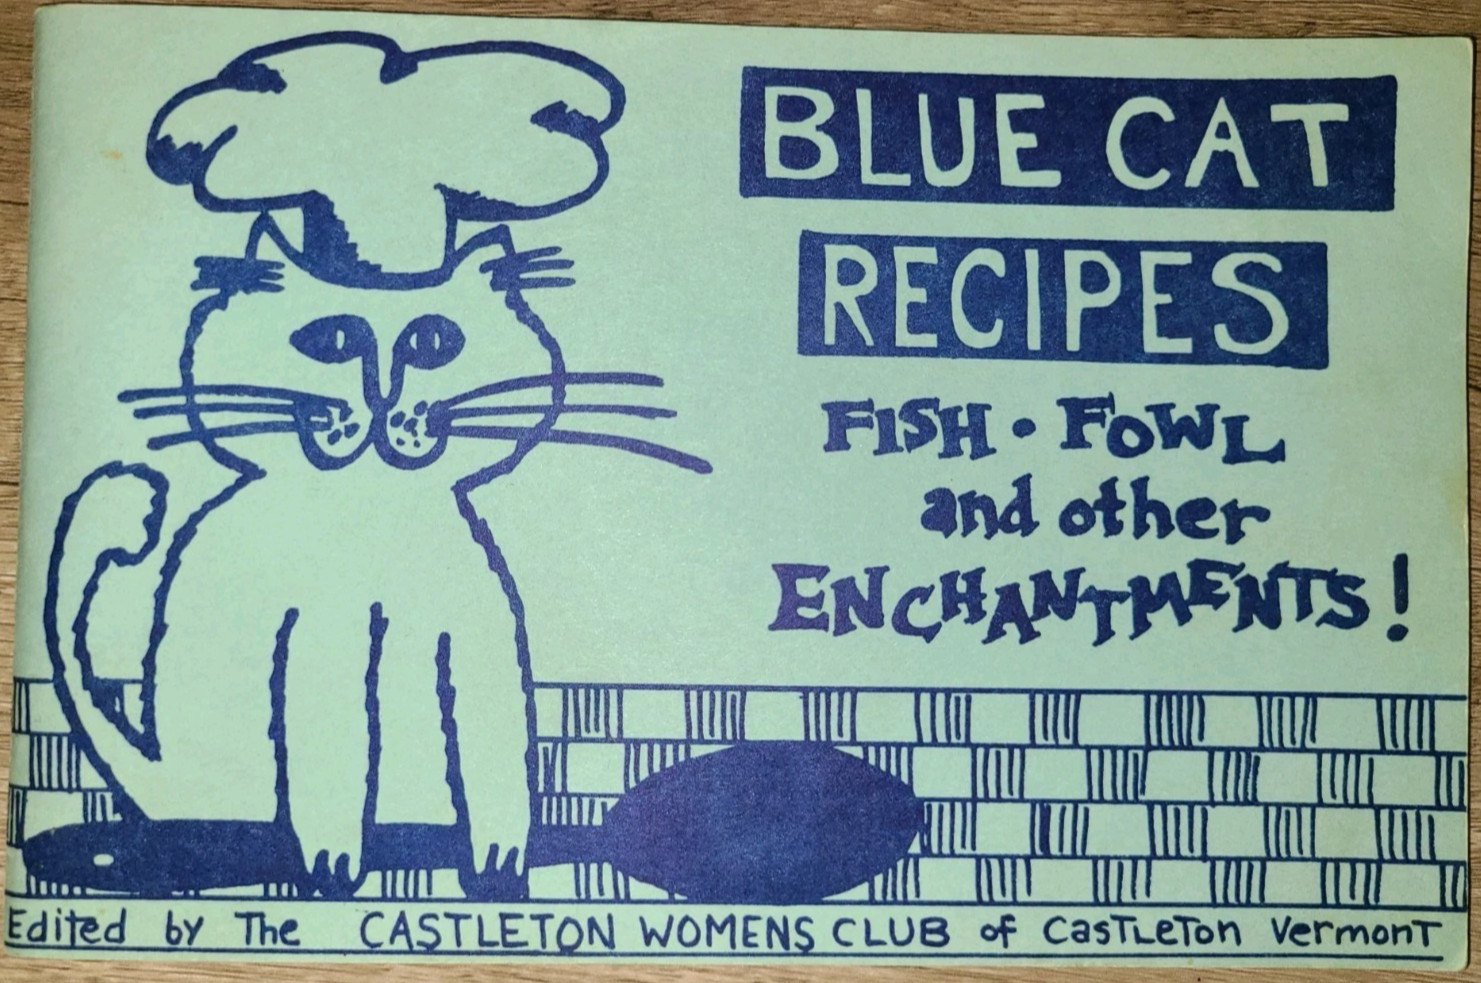 BLUE CAT
RECIPES
FISH • FOWL
and other
ENCHANTMENTS!
Edited by The CASTLETON WOMENS CLUB of CasTLeTon VermonT